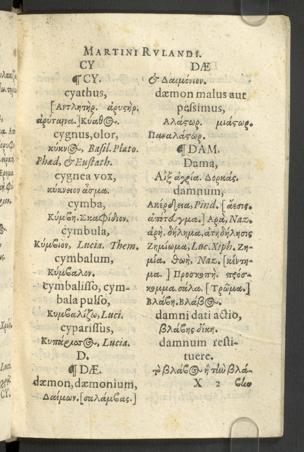 MARTINI RVLANDI.
CY
¶ CY.
cyathus,
[Αντλητὴρ. ἀρυτὴρ.
ἀρύταινα.] Κύαθος.
cygnus, olor,
κύκνος, Basil. Plato.
Phæd, & Eustath.
cygnea vox,
κύκνειον ᾆσμα.
cymba,
Κύμβη. Σκαφίδιον.
cymbula,
Κύμβιον, Lucia. Them.
cymbalum,
Κύμβαλον.
cymbalisso, cym-
bala pulso,
Κυμβαλίζω, Luci.
cyparissus,
Κυπάρισσος, Lucia.
D.
¶ DÆ.
dæmon, dæmonium,
Δαίμων.
DÆ
& Δαιμόνιον.
dæmon malus aut
pessimus,
Αλάστωρ. μιάστωρ.
Παναλάστωρ.
¶ DAM.
Dama,
Αἲξ ἀγρία. Δορκάς.
damnum,
Ακέρδεια, Pind.
Αρά, Naz.
ζημίωμα, Luc. Xiph. Ζη-
μία. Naz.
Προσκοπὴ. πρόσ-
κομμα.
Βλάβη. Βλάβος.
damni dati actio,
βλάβης δίκη.
damnum resti-
tuere.
X 2